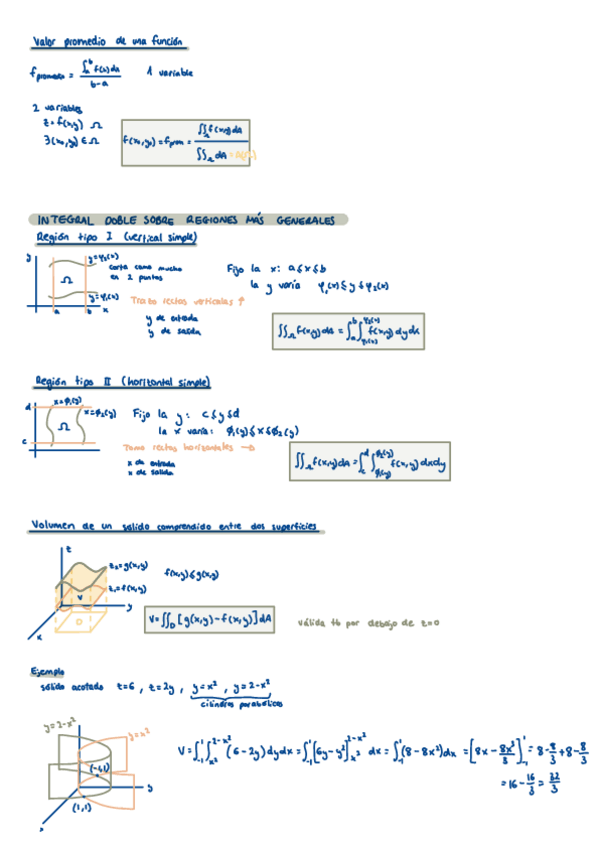 Valor promedio de una función
f promedio = ∫ₐᵇ f(x)dx / b-a    1 variable
2 variables
z=f(x,y) Ω
∃(x₀,y₀) ∈ Ω    f(x₀,y₀) = fprom = ∬Ω f(x,y)dA / ∬Ω dA
INTEGRAL DOBLE SOBRE REGIONES MÁS GENERALES
Región tipo I (vertical simple)
y    y=φ₂(x)
corta como mucho
en 2 puntos
Ω
y=φ₁(x)
a    b    x
Trazo rectas verticales ↑
y de entrada
y de salida
Fijo la x: a≤x≤b
la y varía φ₁(x)≤y≤φ₂(x)
∬Ω f(x,y)dA = ∫ₐᵇ ∫φ₁(x)^φ₂(x) f(x,y)dydx
Región tipo II (horizontal simple)
d    x=ϕ₁(y)
x=ϕ₂(y)
Ω
c
Fijo la y: c≤y≤d
la x varía: ϕ₁(y)≤x≤ϕ₂(y)
Tomo rectas horizontales →
x de entrada
x de salida
∬Ω f(x,y)dA = ∫c^d ∫ϕ₁(y)^ϕ₂(y) f(x,y)dxdy
Volumen de un sólido comprendido entre dos superficies
z
z₂=g(x,y)
z₁=f(x,y)
V
y
D
x
f(x,y)≤g(x,y)
V=∬D [g(x,y)-f(x,y)]dA    válida tb por debajo de z=0
Ejemplo
sólido acotado z=6, z=2y, y=x², y=2-x²
cilindros parabólicos
y=2-x²
y=x²
(-1,1)
y
(1,1)
x
V=∫₋₁¹∫x²^2-x² (6-2y)dydx = ∫₋₁¹[6y-y²]x²^2-x² dx = ∫₋₁¹(8-8x²)dx = [8x - 8x³/3]₋₁¹ = 8-8/3+8-8/3
= 16-16/3 = 32/3